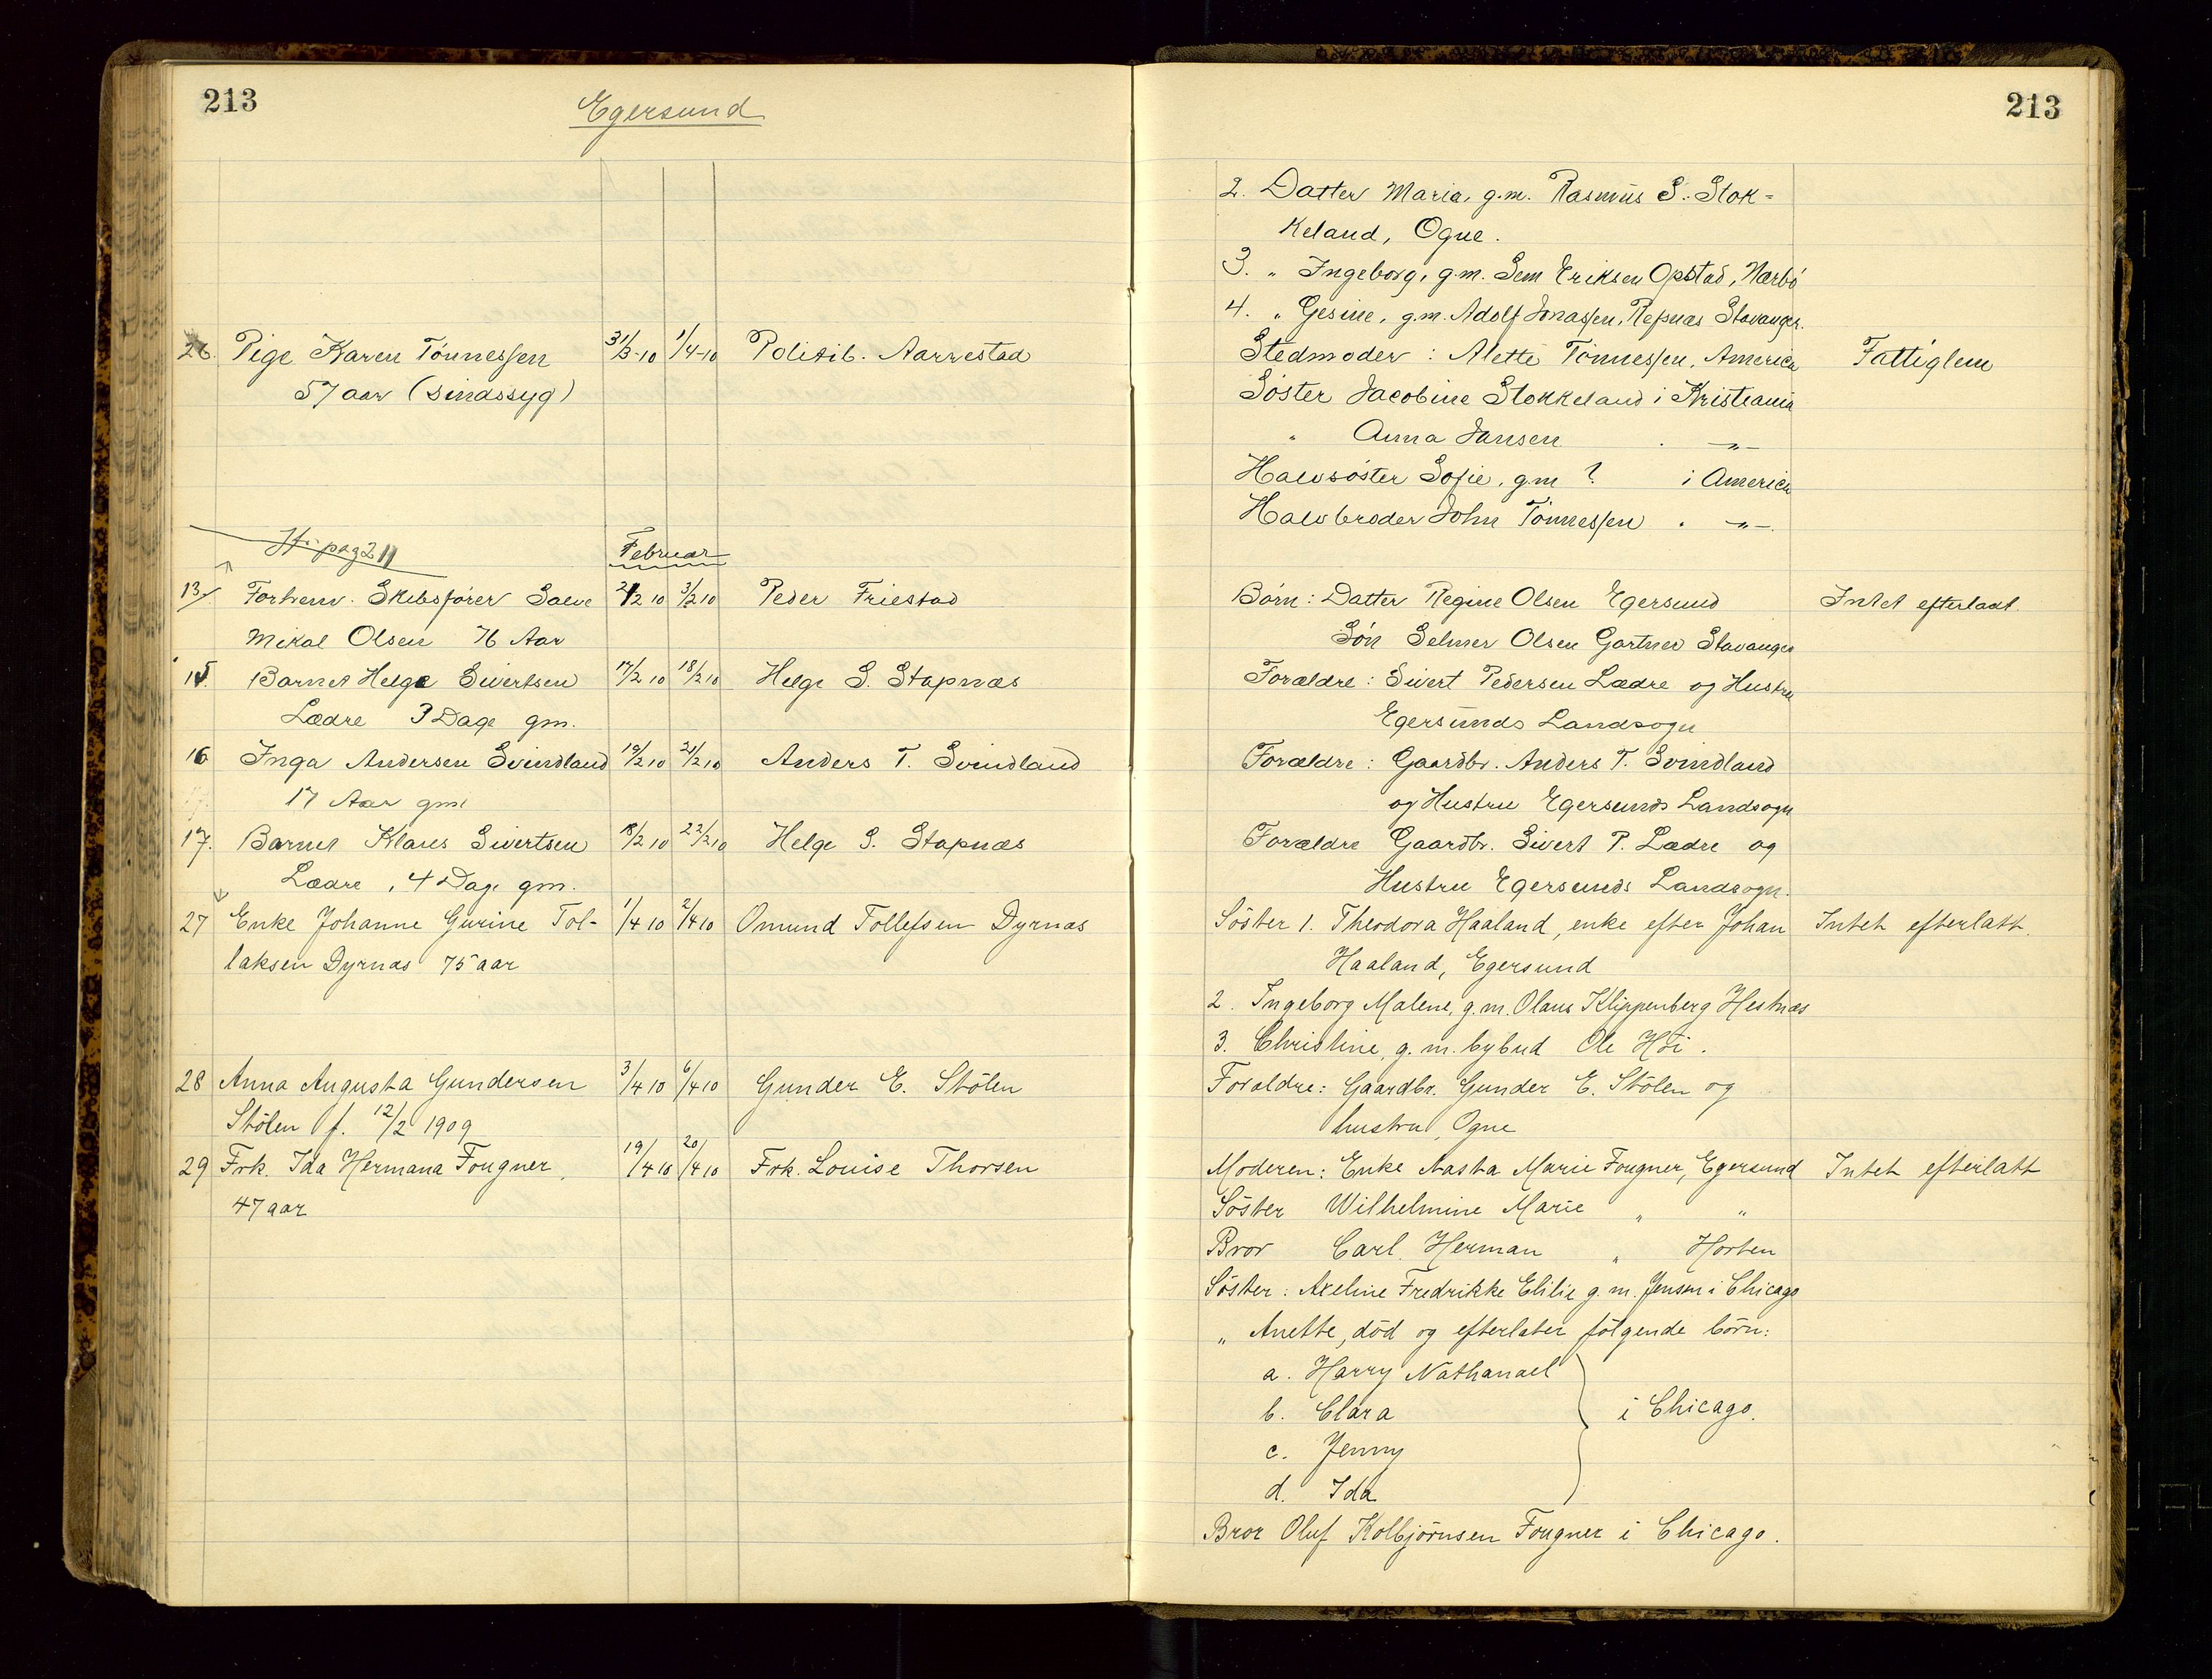 213
Egersund
213
2. Datter Maria, g.m. Rasmus S. Stok-
keland, Ogne.
3. „ Ingeborg, g.m. Sem Eriksen Opstad, Nærbö
4. „ Gesine, g.m. Adolf Jonassen, Repnæs Stavanger.
26. Pige Karen Tönnessen 31/3-10 1/4-10 Politib. Aarrestad Stedmoder: Alette Tönnessen, America Fattiglem
57 aar (sindssyg) Söster Jacobine Stokkeland i Kristiania
„ Anna Jansen . -„-
Halvsöster Sofie, gm ? i America
Halvbroder John Tönnessen . -„-
pag 211 Februar
13/ Forhenv. Skibsfører Salve 2/2 10 3/2 10 Peder Friestad Börn: Datter Regine Olsen Egersund Intet efterladt.
Mikal Olsen 76 Aar Sön Selmer Olsen Gartner Stavanger
15. Barnet Helge Sivertsen 17/2 10 18/2 10 Helge S. Stapnæs Forældre: Sivert Pedersen Lædre og Hustru
Lædre 3 Dage gm. Egersunds Landsogn
16 Inga Andersen Svindland 19/2 10 21/2 10 Anders T. Svindland Forældre: Gaardbr. Anders T. Svindland
17 Aar gml og Hustru Egersunds Landsogn
17. Barnet Klaus Sivertsen 18/2 10 22/2 10 Helge S. Stapnæs Forældre Gaardbr. Sivert P. Lædre og
Lædre, 4 Dage gm. Hustru Egersunds Landsogn.
27 Enke Johanne Gurine Tol- 1/4 10 2/4 10 Omund Tollefsen Dyrnæs Söster 1. Theodora Haaland, enke efter Johan Intet efterlatt.
laksen Dyrnæs 75 aar Haaland, Egersund
2. Ingeborg Malene, g.m. Olaus Klippenberg Hestnæs
3. Christine, g.m. bybud Ole Höi.
28 Anna Augusta Gundersen 3/4 10 6/4 10 Gunder E. Stölen Forældre: Gaardbr. Gunder E. Stölen og
Stölen f. 12/2 1909 hustru, Ogne
29 Frk. Ida Hermana Fougner, 19/4 10 20/4 10 Frk. Louise Thorsen Moderen: Enke Aasta Marie Fougner, Egersund Intet efterlatt
47 aar Söster Wilhelmine Marie „ „
Bror Carl Herman „ Horten
Söster: Axeline Fredrikke Elilie g.m. Jensen i Chicago
„ Anette, död og efterlater följende börn:
a. Harry Nathanael
b. Clara i Chicago.
c. Jenny
d. Ida
Bror Oluf Kolbjörnsen Fougner i Chicago.